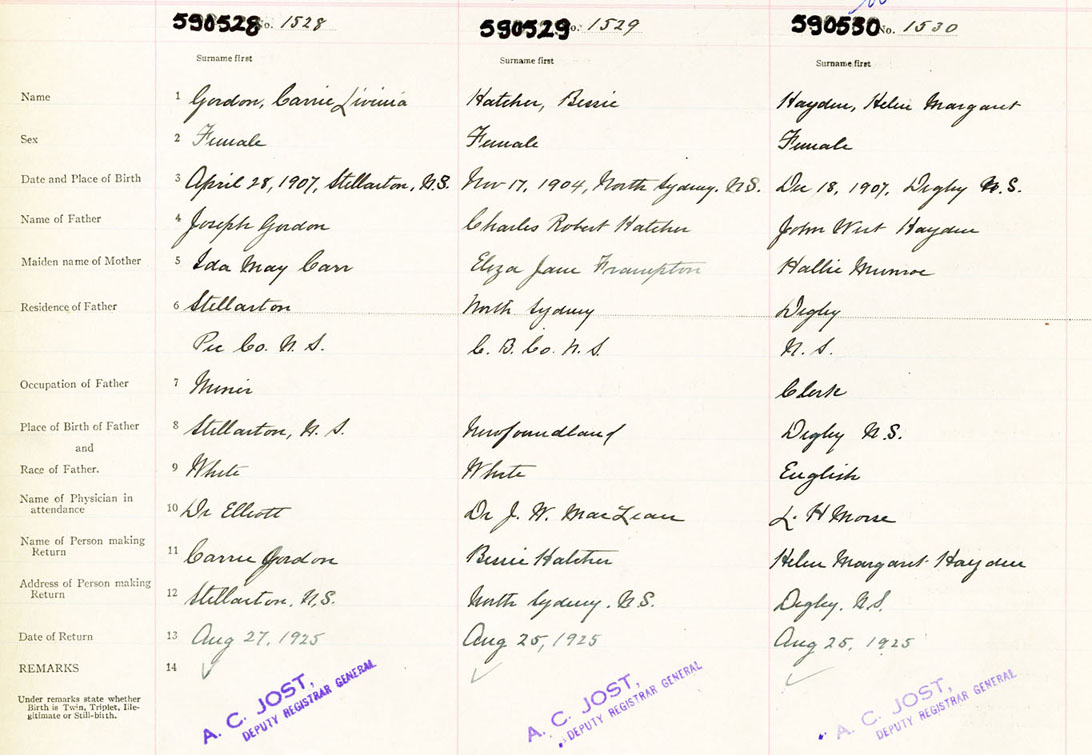 590528 No. 1528 590529 No. 1529 590530 No. 1530
Surname first Surname first Surname first
Name 1 Gordon, Carrie Livinia Hatcher, Bessie Hayden, Helen Margaret
Sex 2 Female Female Female
Date and Place of Birth 3 April 28, 1907, Stellarton, N.S. Nov 17, 1904, North Sydney, N.S. Dec 18, 1907, Digby N.S.
Name of Father 4 Joseph Gordon Charles Robert Hatcher John West Hayden
Maiden name of Mother 5 Ida May Carr Eliza Jane Frampton Hallie Munroe
Residence of Father 6 Stellarton North Sydney Digby
Pic Co. N. S. C. B. Co. N. S. N. S.
Occupation of Father 7 Miner Clerk
Place of Birth of Father 8 Stellarton, N. S. Newfoundland Digby N.S.
and
Race of Father. 9 White White English
Name of Physician in
attendance 10 Dr Elliott Dr J. W. MacLean L. H Morse
Name of Person making
Return 11 Carrie Gordon Bessie Hatcher Helen Margaret Hayden
Address of Person making
Return 12 Stellarton, N.S. North Sydney. N.S. Digby. N.S.
Date of Return 13 Aug 27, 1925 Aug 25, 1925 Aug 25, 1925
REMARKS 14
Under remarks state whether
Birth is Twin, Triplet, Ille-
gitimate or Still-birth.
A. C. JOST, A. C. JOST, A. C. JOST,
DEPUTY REGISTRAR GENERAL DEPUTY REGISTRAR GENERAL DEPUTY REGISTRAR GENERAL